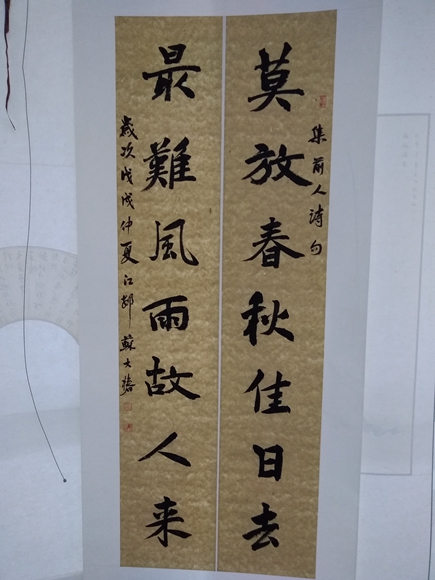 集前人詩句
莫放春秋佳日去
最難風雨故人来
歲次戊戌仲夏江都蘇大